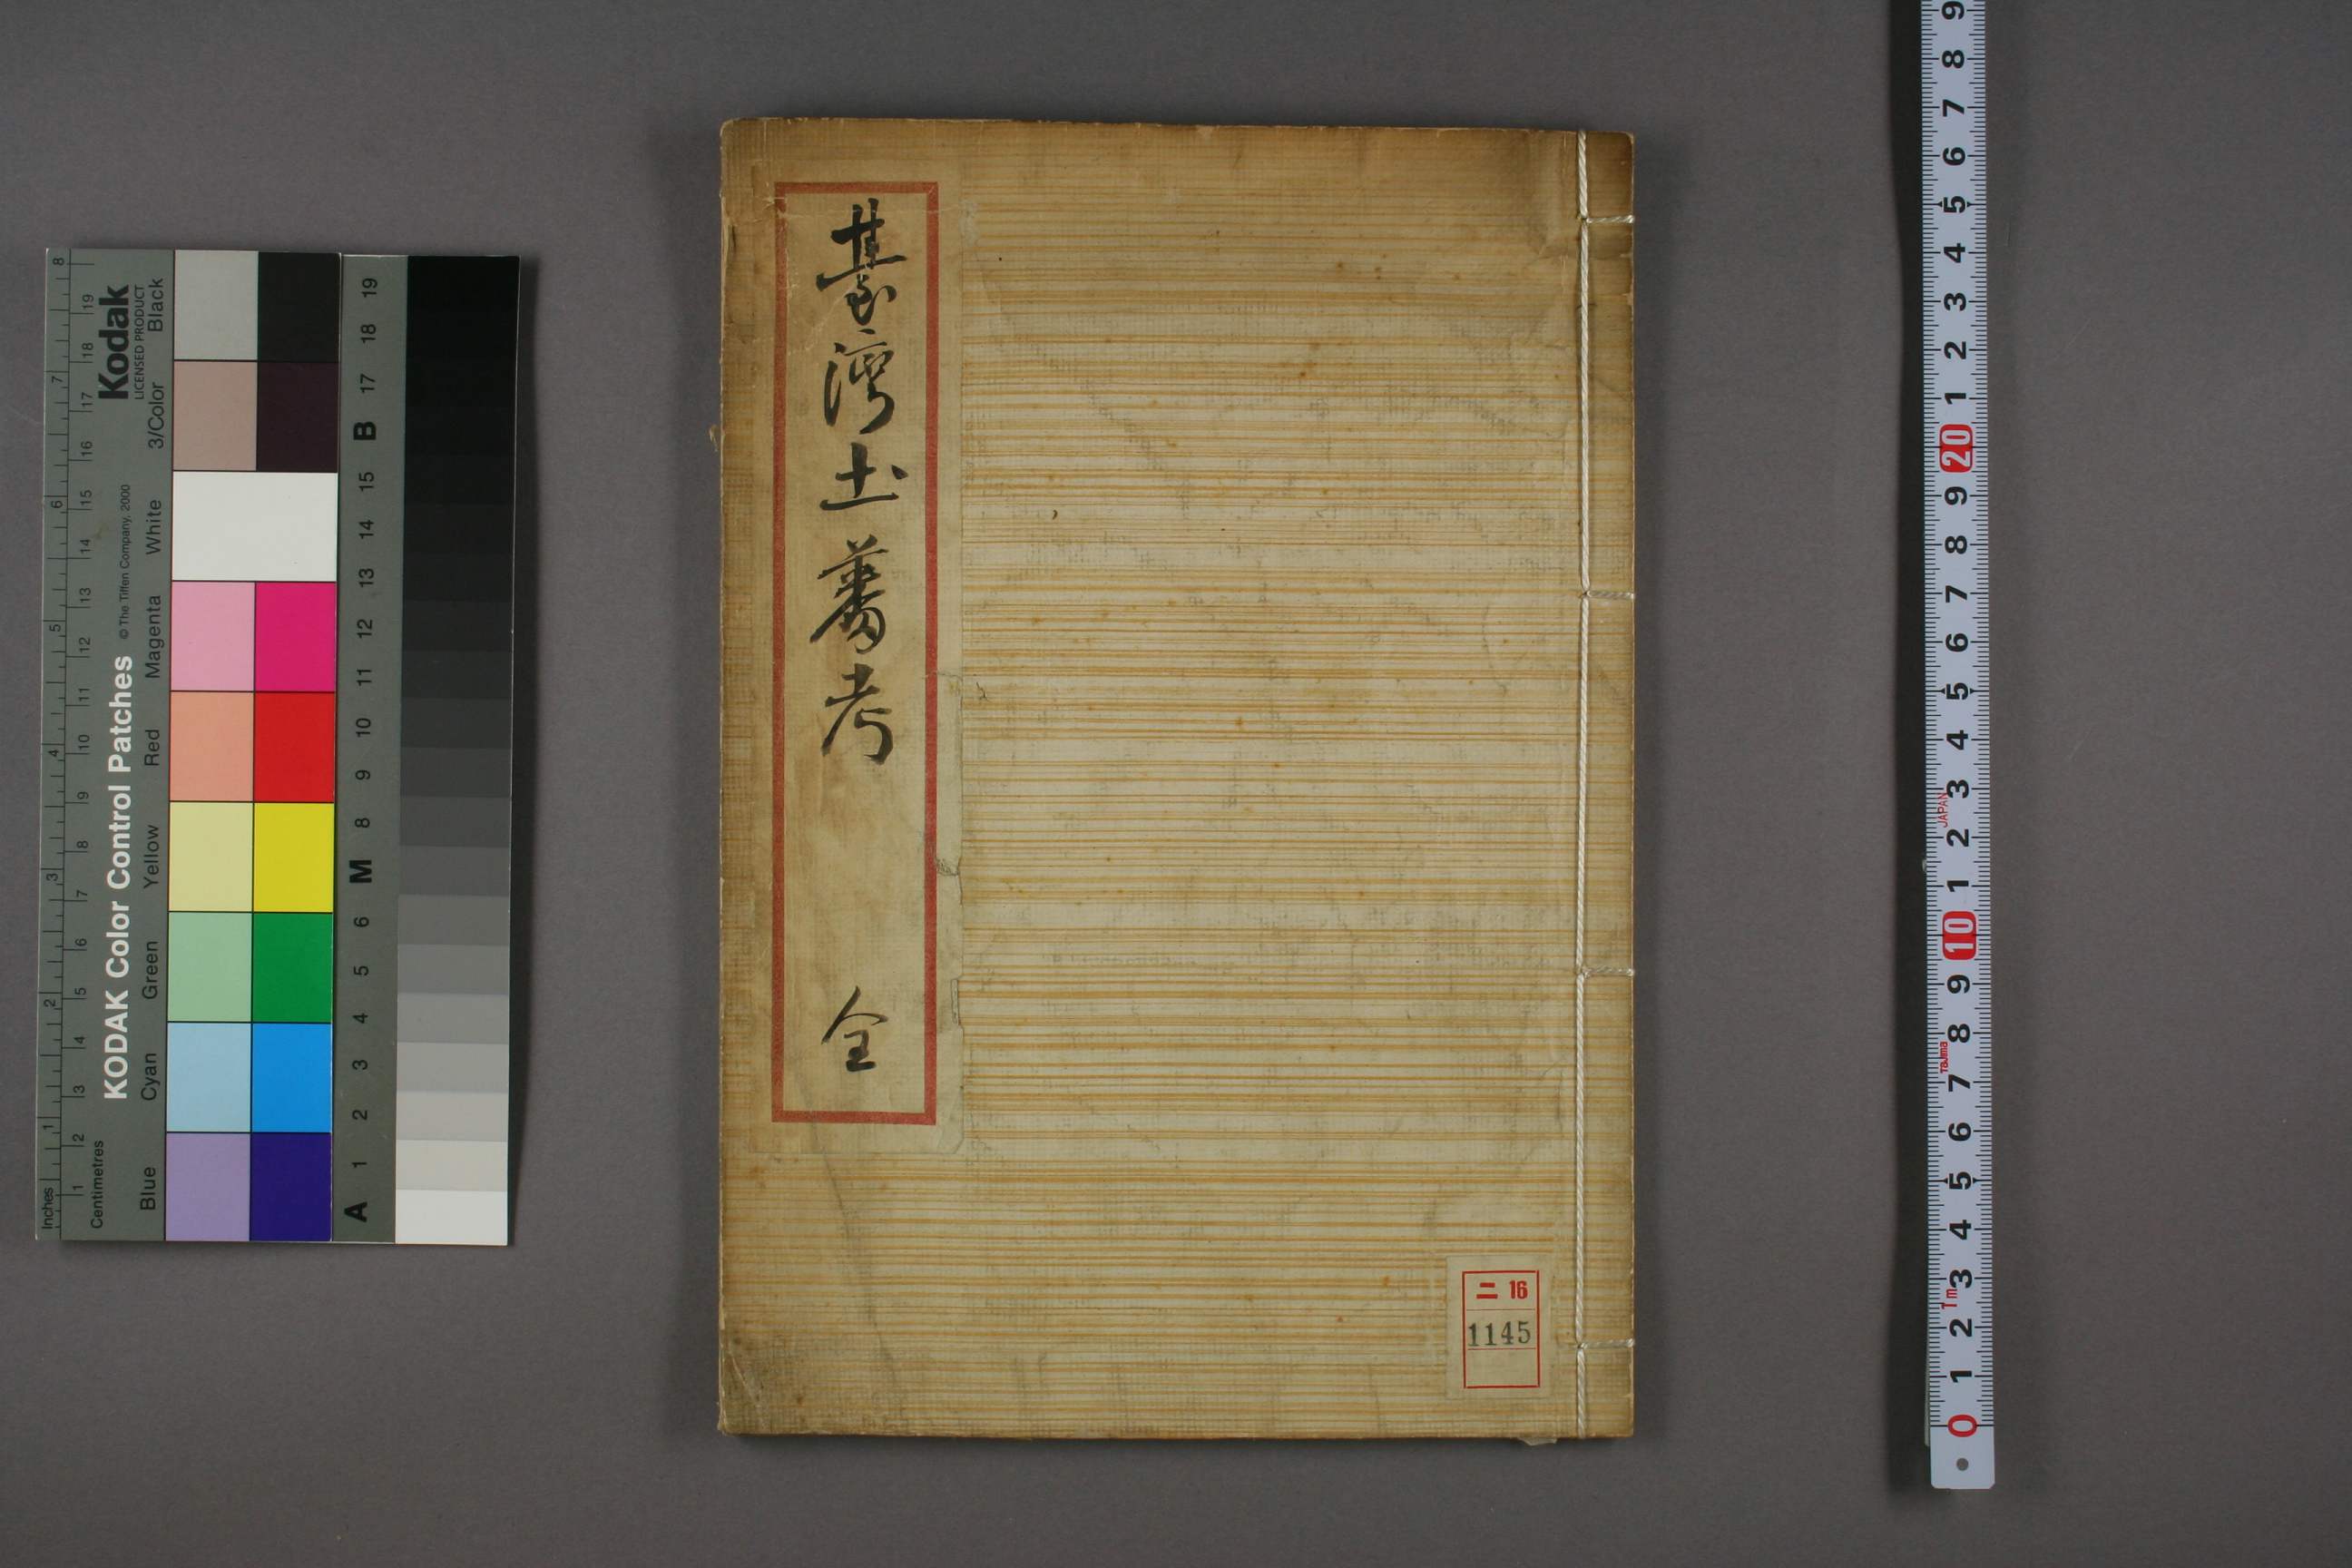 臺灣土蕃考
全
二 16
1145
KODAK Color Control Patches
© The Tiffen Company, 2000
Kodak
LICENSED PRODUCT
Inches
1 2 3 4 5 6 7 8
Centimetres
1 2 3 4 5 6 7 8 9 10 11 12 13 14 15 16 17 18 19
Blue Cyan Green Yellow Red Magenta White 3/Color Black
A 1 2 3 4 5 6 M 8 9 10 11 12 13 14 15 B 17 18 19
9 8 7 6 5 4 3 2 1 20 9 8 7 6 5 4 3 2 1 10 9 8 7 6 5 4 3 2 1 0
JAPAN
Tajima
Tm